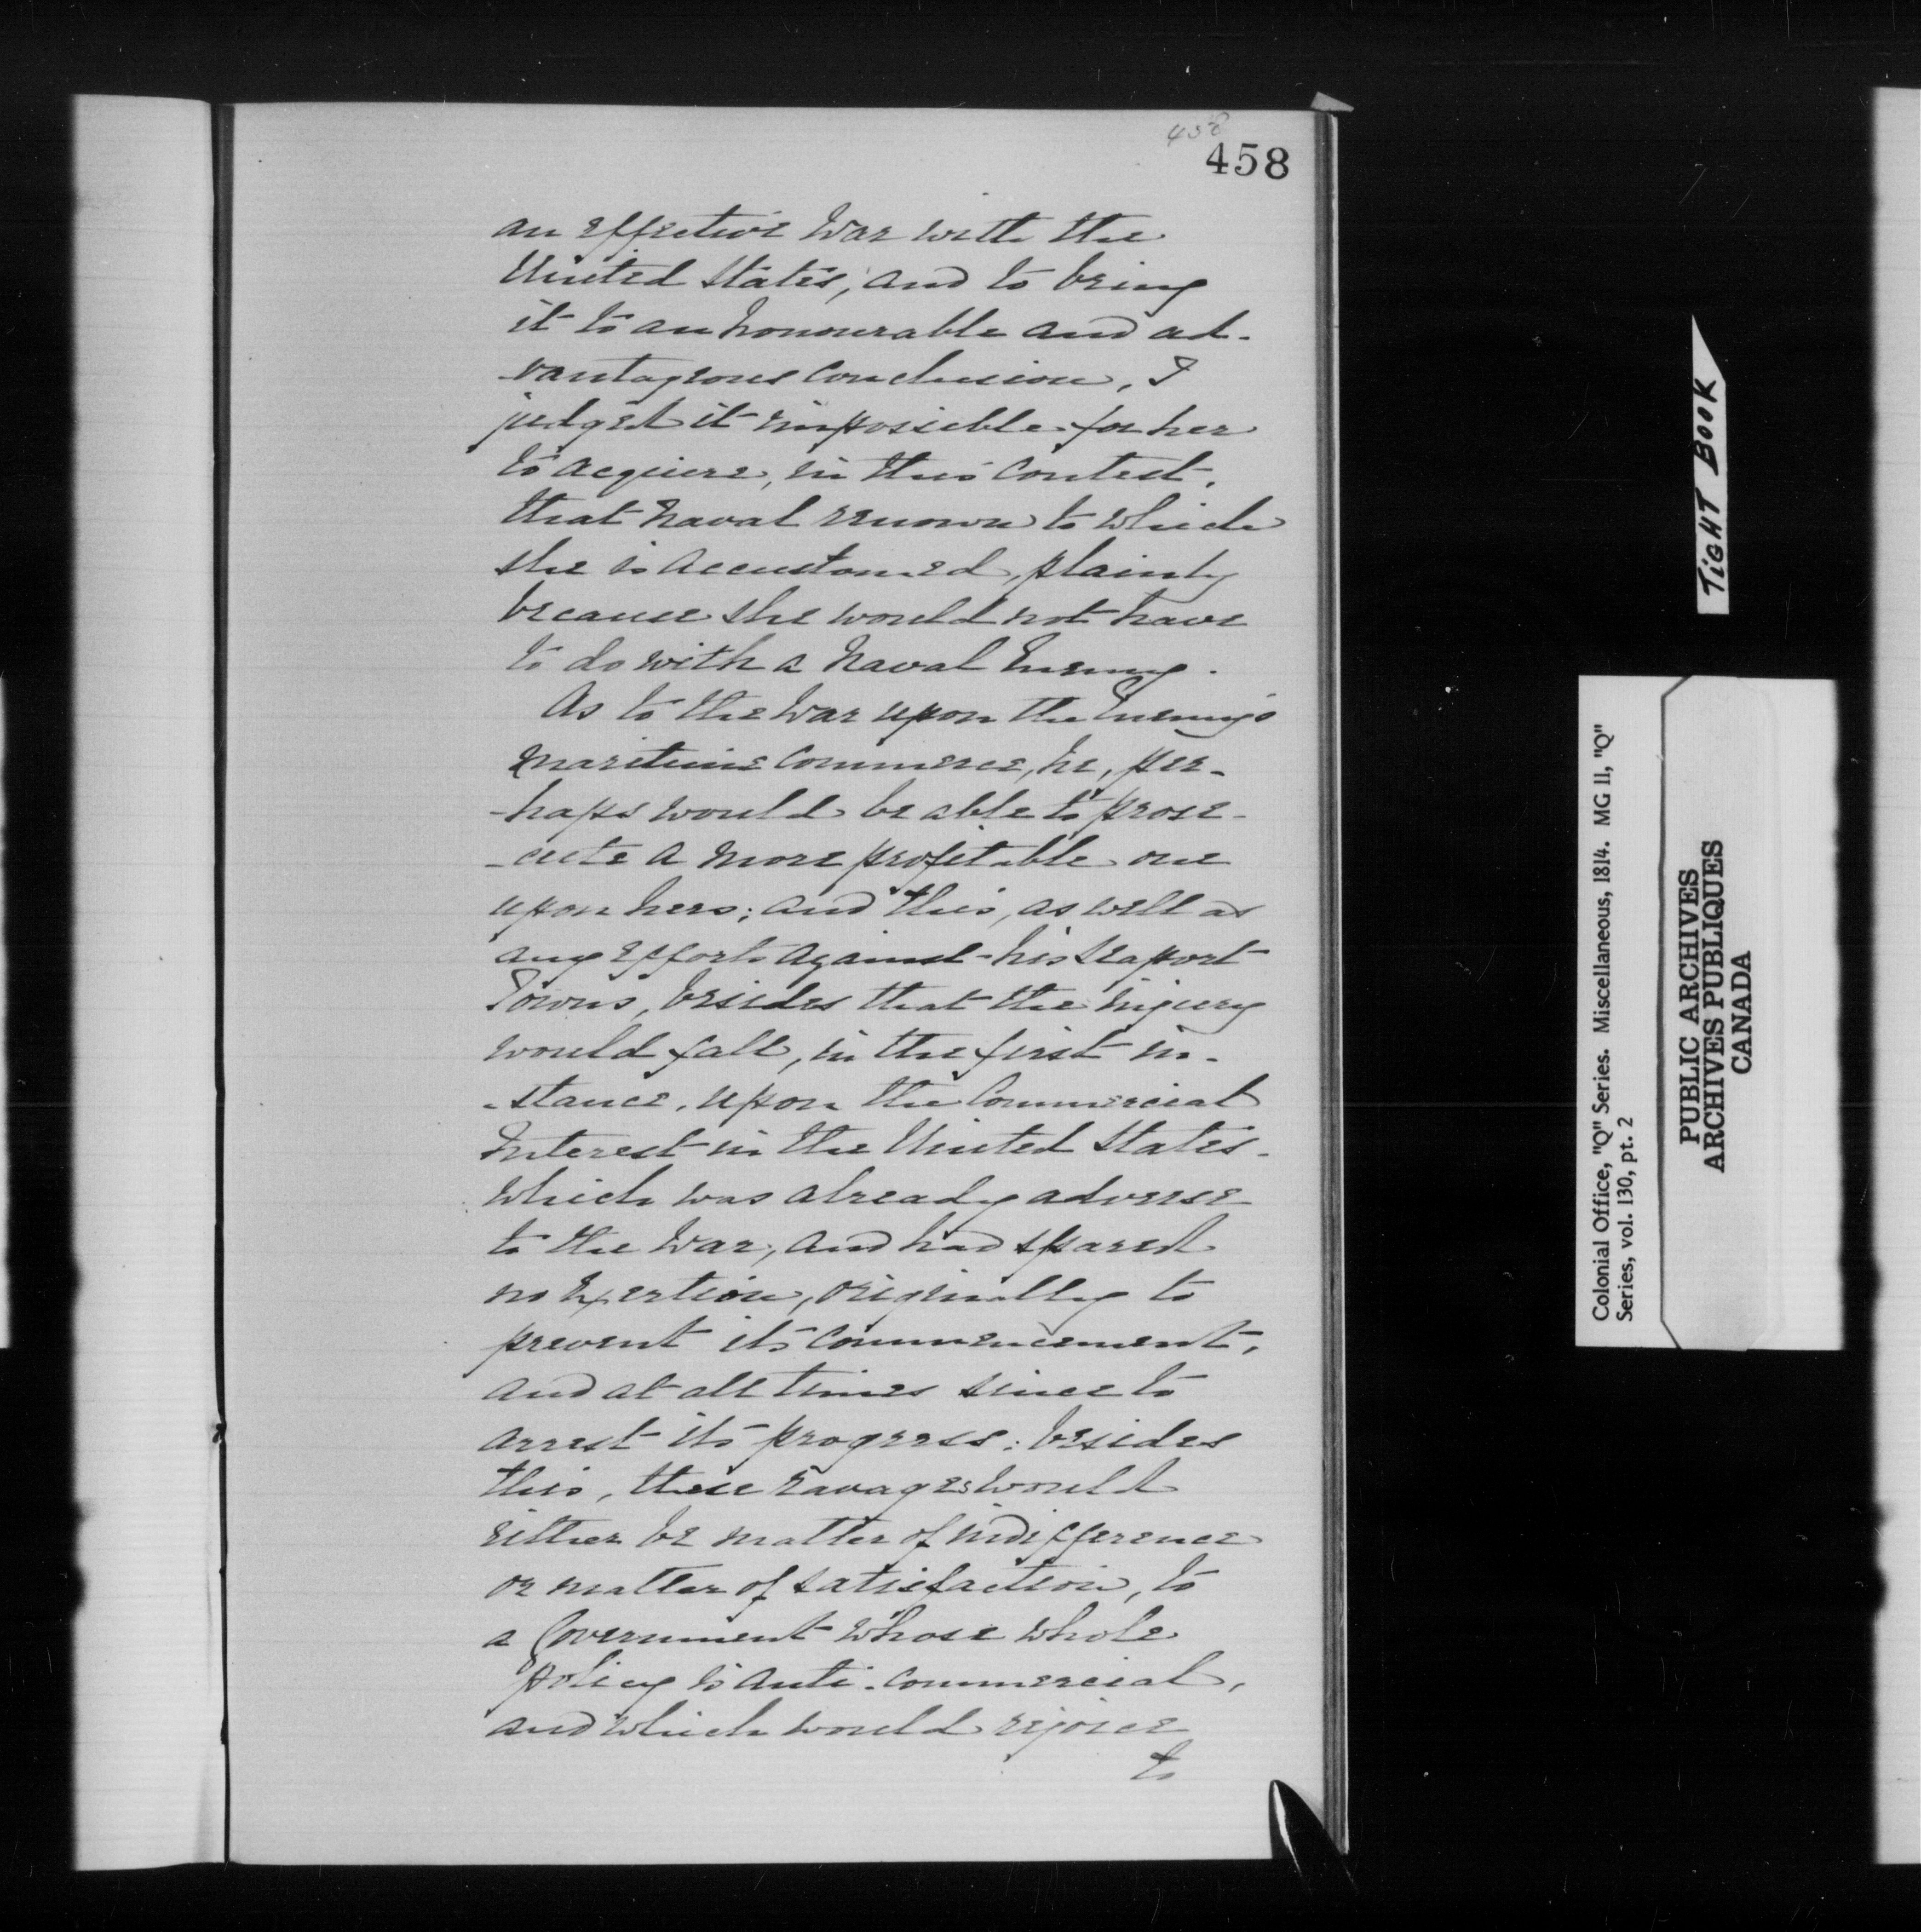 458
458
an effective War with the
United States, and to bring
it to an honourable and ad-
-vantageous conclusion, I
judged it impossible for her
to acquire, in this contest,
that Naval renown to which
she is accustomed, plainly
because she would not have
to do with a Naval Enemy.
As to the War upon the Enemy's
Maritime Commerce, he, per-
-haps would be able to prose-
-cute a more profitable one
upon hers; and this, as well as
any effort against his Seaport
Towns, besides that the injury
would fall, in the first in-
-stance, upon the Commercial
Interest in the United States-
which was already adverse
to the War, and had spared
no Exertion, originally to
prevent its commencement,
and at all times since to
arrest its progress; besides
this, these ravages would
either be matter of indifference
or matter of satisfaction, to
a Government whose whole
policy is anti-commercial,
and which would rejoice
to
TIGHT BOOK
Colonial Office, "Q" Series. Miscellaneous, 1814. MG 11, "Q"
Series, vol. 130, pt. 2
PUBLIC ARCHIVES
ARCHIVES PUBLIQUES
CANADA